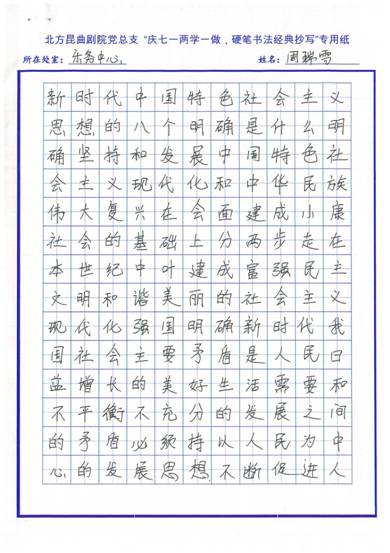 北方昆曲剧院党总支 “庆七一两学一做，硬笔书法经典抄写”专用纸
所在处室：乐务中心 姓名：周瑞雪
新时代中国特色社会主义
思想的八个明确是什么明
确坚持和发展中国特色社
会主义现代化和中华民族
伟大复兴在会面建成小康
社会的基础上分两步走在
本世纪中叶建成富强民主
文明和谐美丽的社会主义
现代化强国明确新时代我
国社会主要矛盾是人民日
益增长的美好生活需要和
不平衡不充分的发展之间
的矛盾必须持以人民为中
心的发展思想不断促进人